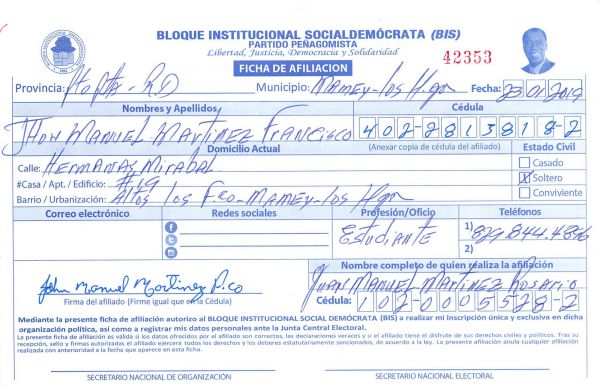 BLOQUE INSTITUCIONAL SOCIALDEMÓCRATA (BIS)
PARTIDO PEÑAGOMISTA
Libertad, Justicia, Democracia y Solidaridad
FICHA DE AFILIACION
42353
Provincia: Pto Pta - R.D Municipio: Mamey-los Hgos Fecha: 23 01 2019
Nombres y Apellidos Cédula
JHon Manuel Martinez Francisco 402-2813818-2
Domicilio Actual (Anexar copia de cédula del afiliado) Estado Civil
Calle: Hermanas Mirabal Casado
#Casa / Apt. / Edificio: #19 X Soltero
Barrio / Urbanización: Altos los Fco-Mamey-los Hgos Conviviente
Correo electrónico Redes sociales Profesión/Oficio Teléfonos
Estudiante 1) 829.844.4896
2)
John Manuel Martinez Fco
Firma del afiliado (Firme igual que en la Cédula)
Nombre completo de quien realiza la afiliación
Juan Manuel Martinez Rosario
Cédula: 102-0005528-2
Mediante la presente ficha de afiliación autorizo al BLOQUE INSTITUCIONAL SOCIAL DEMÓCRATA (BIS) a realizar mi inscripción única y exclusiva en dicha
organización política, así como a registrar mis datos personales ante la Junta Central Electoral.
La presente ficha de afiliación es válida si los datos ofrecidos por el afiliado son correctos, las declaraciones veraces y si el afiliado tiene el disfrute de sus derechos civiles y políticos. Tras su
recepción, sello y firmas autorizadas el afiliado ejercerá todos los derechos y los deberes estatutariamente sancionados, de acuerdo a la ley. La presente afiliación anula cualquier afiliación
realizada con anterioridad a la fecha que aparece en esta ficha.
SECRETARIO NACIONAL DE ORGANIZACIÓN SECRETARIO NACIONAL ELECTORAL